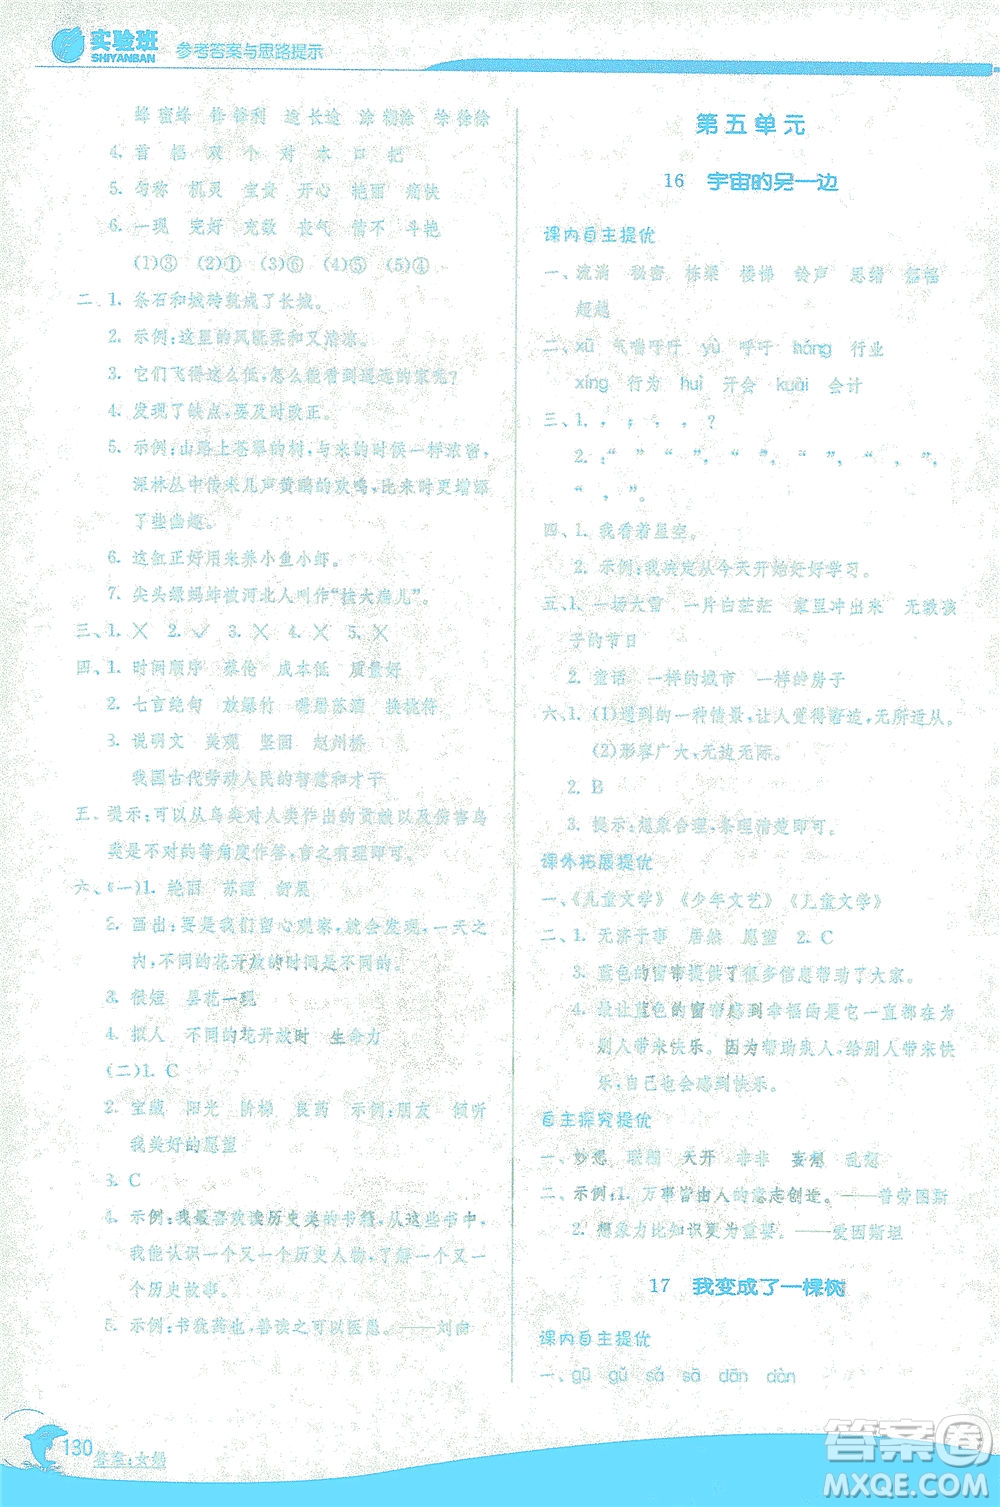 实验班
SHIYANBAN
参考答案与思路提示
蜂 蜜蜂 锋 锋利 逢 长途 涂 糊涂 徐 徐徐
4. 首 幅 双 个 对 本 口 把
5. 匀称 机灵 宝贵 开心 艳丽 痛快
6. 一现 完好 充数 丧气 情不 斗艳
(1)③ (2)① (3)⑥ (4)⑤ (5)④
二、1. 条石和城砖筑成了长城。
2. 示例:这里的风既柔和又清凉。
3. 它们飞得这么低,怎么能看到遥远的家呢?
4. 发现了缺点,要及时改正。
5. 示例:山路上苍翠的树,与来的时候一样浓密,
深林丛中传来几声黄鹂的欢鸣,比来时更增添
了些幽趣。
6. 这缸正好用来养小鱼小虾。
7. 尖头绿蚂蚱被河北人叫作“挂大扁儿”。
三、1. ✕ 2. ✓ 3. ✕ 4. ✕ 5. ✕
四、1. 时间顺序 蔡伦 成本低 质量好
2. 七言绝句 放爆竹 喝屠苏酒 换桃符
3. 说明文 美观 坚固 赵州桥
我国古代劳动人民的智慧和才干
五、提示:可以从鸟类对人类作出的贡献以及伤害鸟
类是不对的等角度作答,言之有理即可。
六、(一)1. 艳丽 苏醒 舒展
2. 画出:要是我们留心观察,就会发现,一天之
内,不同的花开放的时间是不同的。
3. 很短 昙花一现
4. 拟人 不同的花开放时 生命力
(二)1. C
2. 宝藏 阳光 阶梯 良药 示例:朋友 倾听
我美好的愿望
3. C
4. 示例:我最喜欢读历史类的书籍,从这些书中,
我能认识一个又一个历史人物,了解一个又一
个历史故事。
5. 示例:书犹药也,善读之可以医愚。——刘向
130
第五单元
16 宇宙的另一边
课内自主提优
一、流淌 秘密 栋梁 楼梯 铃声 思绪 篇幅
超越
二、xū 气喘吁吁 yù 呼吁 háng 行业
xíng 行为 huì 开会 kuài 会计
三、1. , ; , ; , ?
2. :“ ”, “ ”, “ ”, “ ”,
“ ”, “ ”。
四、1. 我看着星空。
2. 示例:我决定从今天开始好好学习。
五、1. 一场大雪 一片白茫茫 家里冲出来 无数孩
子的节日
2. 童话 一样的城市 一样的房子
六、1. (1)遇到的一种情景,让人觉得窘迫,无所适从。
(2)形容广大,无边无际。
2. B
3. 提示:想象合理,条理清楚即可。
课外拓展提优
一、《儿童文学》《少年文艺》《儿童文学》
二、1. 无济于事 居然 愿望 2. C
3. 蓝色的窗帘提供了很多信息帮助了大家。
4. 最让蓝色的窗帘感到幸福的是它一直都在为
别人带来快乐。因为帮助别人,给别人带来快
乐,自己也会感到快乐。
自主探究提优
一、妙想 联翩 天开 非非 妄想 乱想
二、示例:1. 万事皆由人的意志创造。——普劳图斯
2. 想象力比知识更为重要。——爱因斯坦
17 我变成了一棵树
课内自主提优
一、gū gǔ sá sā dān dàn
答案:大全
答案圈
MXQE.COM